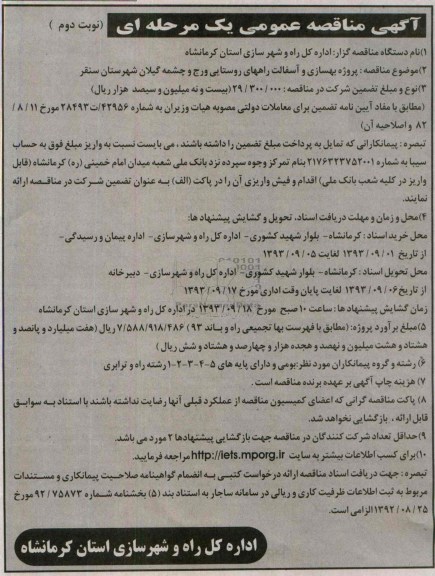 آگهی مناقصه عمومی یک مرحله ای (نوبت دوم )
۱)نام دستگاه مناقصه گزار: اداره کل راه و شهر سازی استان کرمانشاه
۲)موضوع مناقصه : پروژه بهسازی و آسفالت راههای روستایی ورج و چشمه گیلان شهرستان سنقر
۳)نوع و مبلغ تضمین شرکت در مناقصه : ۲۹/۳۰۰/۰۰۰ (بیست و نه میلیون و سیصد هزار ریال)
(مطابق با مفاد آیین نامه تضمین برای معاملات دولتی مصوبه هیات وزیران به شماره ۴۲۹۵۶/ت۲۸۴۹۳ مورخ ۱۱ / ۸ /
۸۲ و اصلاحیه آن)
تبصره : پیمانکارانی که تمایل به پرداخت مبلغ تضمین را داشته باشند ، می بایست نسبت به واریز مبلغ فوق به حساب
سیبا به شماره ۲۱۷۶۳۲۳۷۵۲۰۰۱ بنام تمرکز وجوه سپرده نزد بانک ملی شعبه میدان امام خمینی (ره) کرمانشاه (قابل
واریز در کلیه شعب بانک ملی) اقدام و فیش واریزی آن را در پاکت (الف) به عنوان تضمین شرکت در مناقصه ارائه
نمایند.
۴)محل و زمان و مهلت دریافت اسناد، تحویل و گشایش پیشنهاد ها:
محل خرید اسناد : کرمانشاه- بلوار شهید کشوری- اداره کل راه و شهرسازی- اداره پیمان و رسیدگی-
از تاریخ ۰۱ / ۰۹ / ۱۳۹۳ لغایت ۰۵ / ۰۹ / ۱۳۹۳
محل تحویل اسناد : کرمانشاه- بلوار شهید کشوری - اداره کل راه و شهرسازی- دبیرخانه
از تاریخ ۰۶ / ۰۹ / ۱۳۹۳ لغایت پایان وقت اداری مورخ ۱۷ / ۰۹ / ۱۳۹۳
زمان گشایش پیشنهاد ها : ساعت ۱۰ صبح مورخ ۱۸ / ۰۹ / ۱۳۹۳ در اداره کل راه و شهر سازی استان کرمانشاه
۵)مبلغ برآورد پروژه : (مطابق با فهرست بها تجمیعی راه و باند ۹۳) ۷/۵۸۸/۹۱۸/۴۸۶ ریال (هفت میلیارد و پانصد و
هشتاد و هشت میلیون و نهصد و هجده هزار و چهارصد و هشتاد و شش ریال)
۶) رشته و گروه پیمانکاران مورد نظر: بومی و دارای پایه های ۵-۴-۳-۲-۱ رشته راه و ترابری
۷) هزینه چاپ آگهی بر عهده برنده مناقصه است .
۸) پاکت مناقصه گرانی که اعضای کمیسیون مناقصه از عملکرد قبلی آنها رضایت نداشته باشند با استناد به سوابق
قابل ارائه ، بازگشایی نخواهد شد.
۹)حداقل تعداد شرکت کنندگان در مناقصه جهت بازگشایی پیشنهادها ۲ مورد می باشد.
۱۰)برای کسب اطلاعات بیشتر به سایت http://iets.mporg.ir مراجعه فرمایید.
تبصره : جهت دریافت اسناد مناقصه ارائه درخواست کتبی به انضمام گواهینامه صلاحیت پیمانکاری و مستندات
مربوط به ثبت اطلاعات ظرفیت کاری و ریالی در سامانه ساجار به استناد بند (۵) بخشنامه شماره ۹۲/۷۵۸۷۳ مورخ
۲۵ / ۰۸ / ۱۳۹۲ الزامی است.
اداره کل راه و شهرسازی استان کرمانشاه